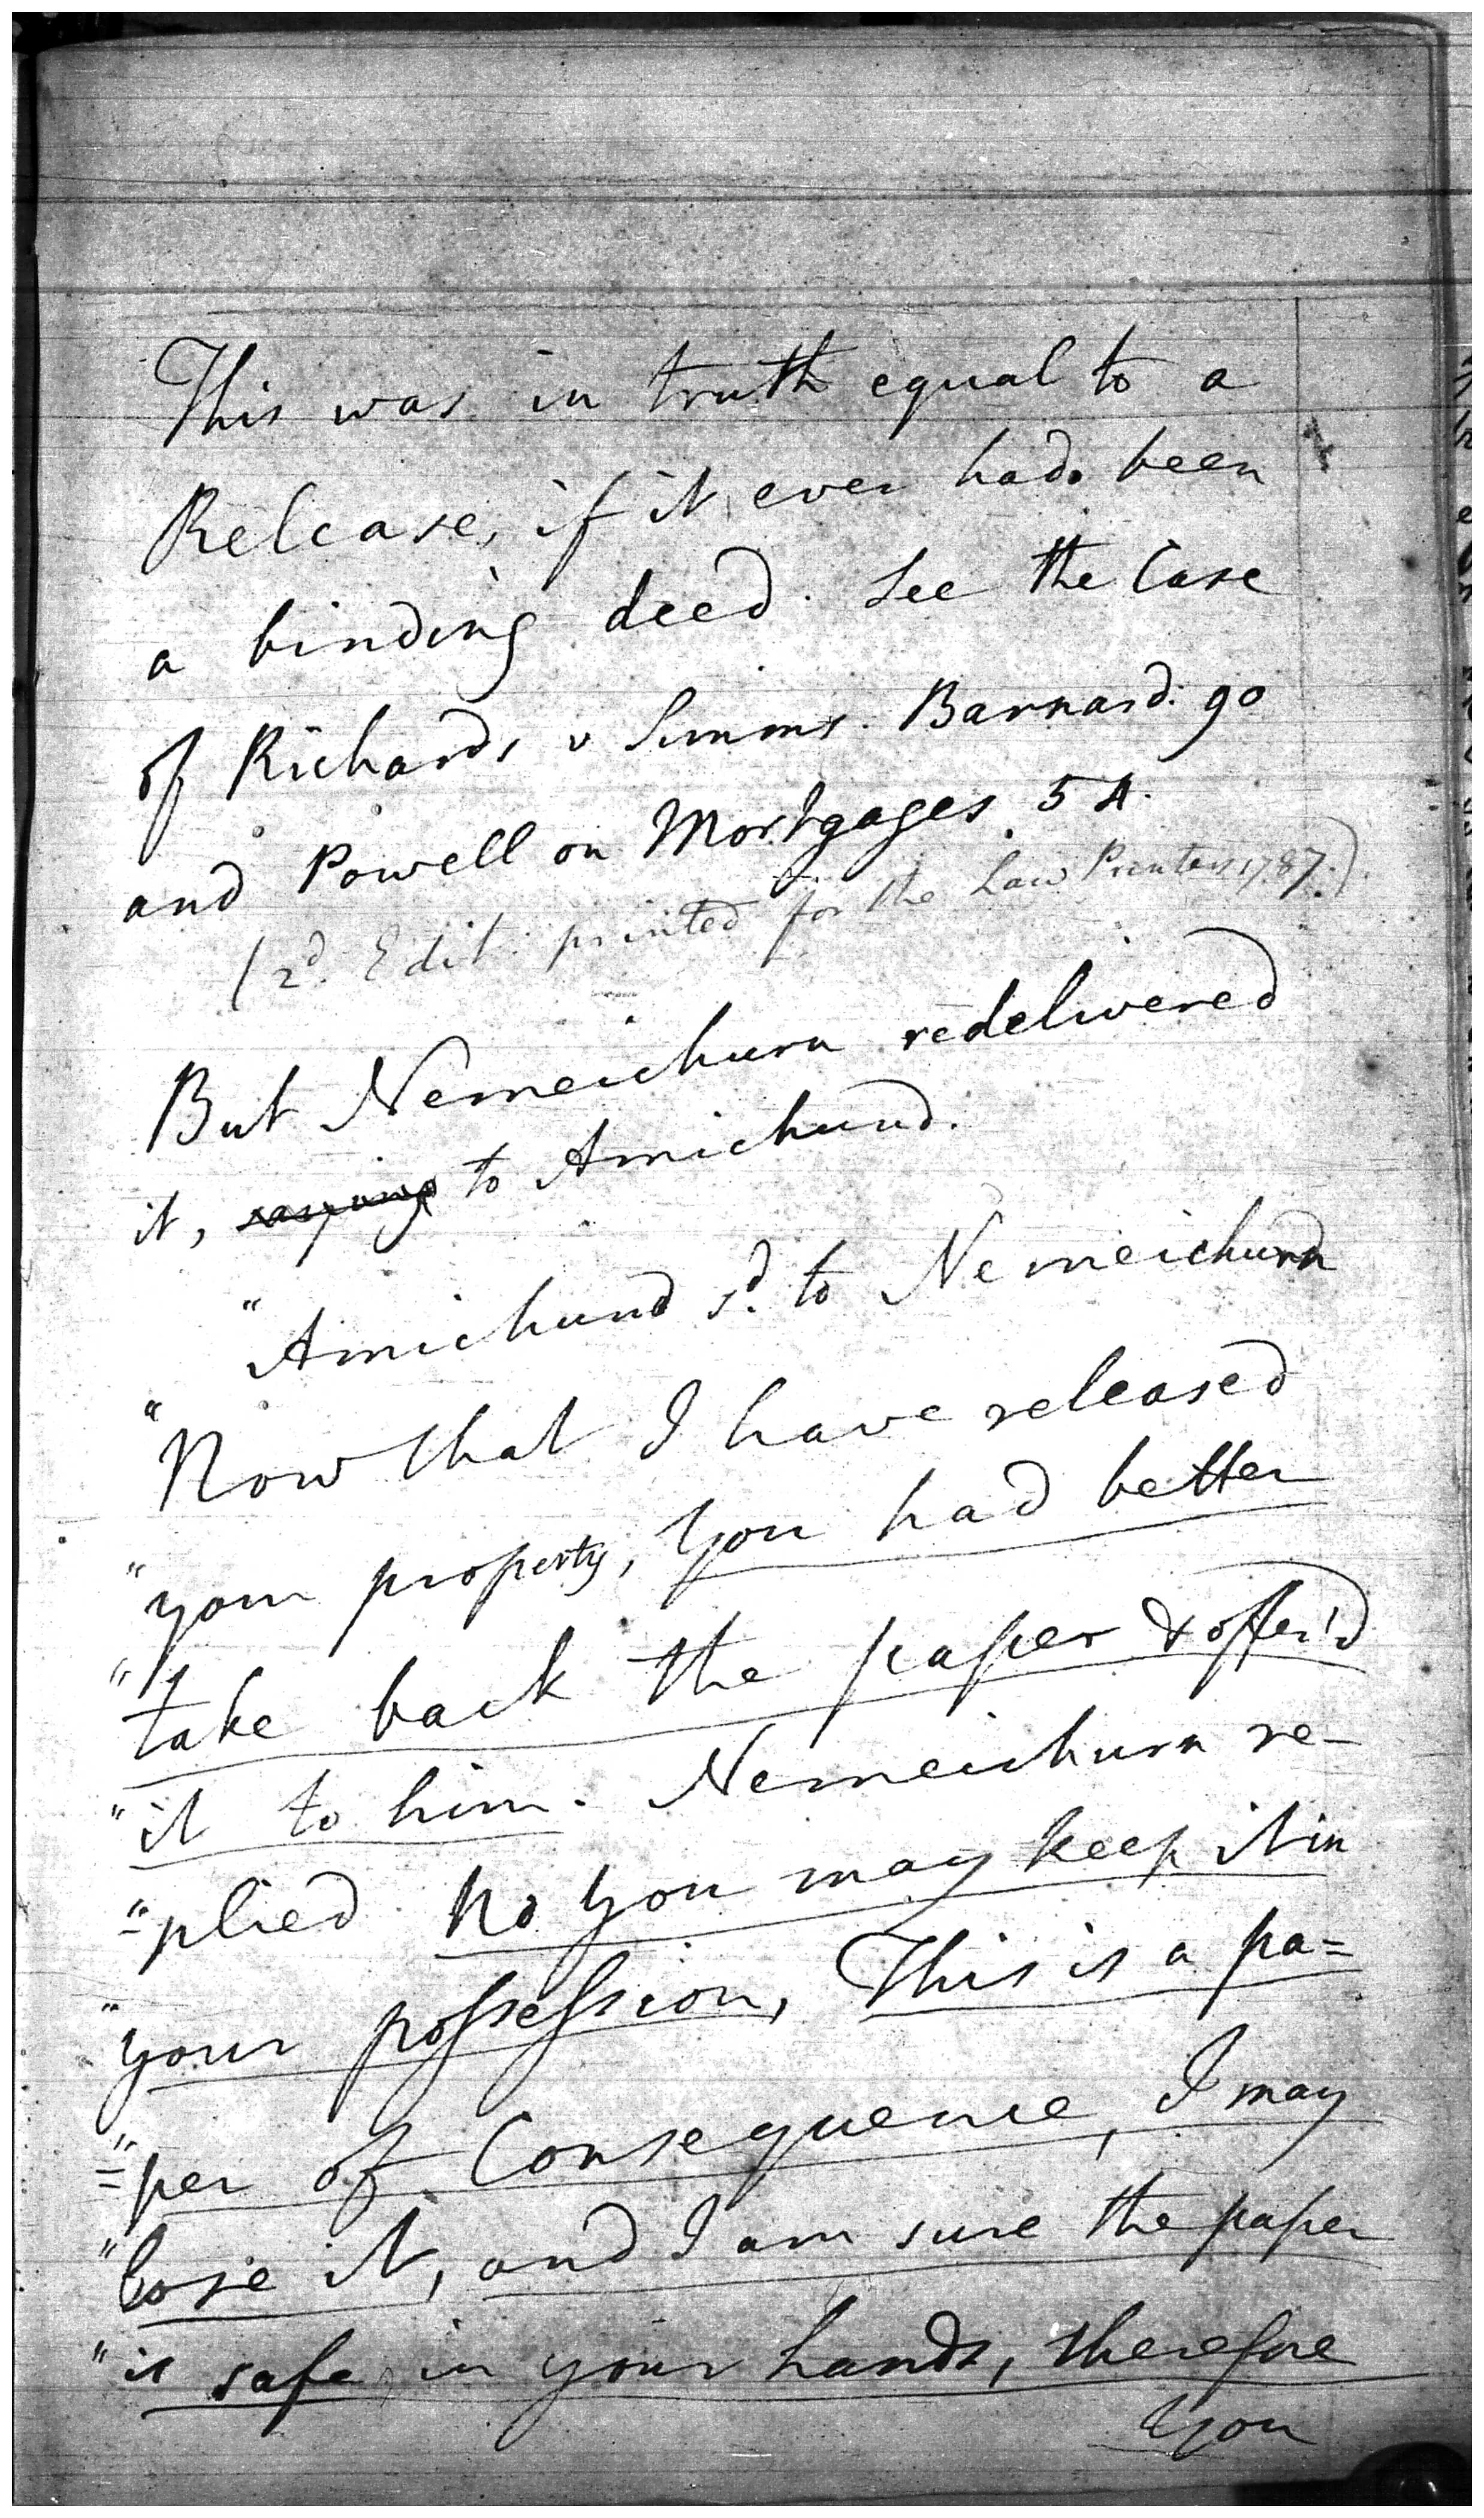 This was in truth equal to a
Release, if it ever had been
a binding deed. See the Case
of Richards v Simms. Barnard: 90
and Powell on Mortgages. 54.
(2d. Edit: printed for the Law Printers 1787.)
But Nemeichurn redelivered
it, saying to Amichund.
"Amichund sd. to Nemeichurn
"Now that I have released
"your property, You had better
"take back the paper & offer'd
"it to him. Nemeichurn re-
"-plied No You may keep it in
"your possession, This is a pa=
"=per of Consequence, I may
"lose it, and I am sure the paper
"is safe in your hands, therefore
You